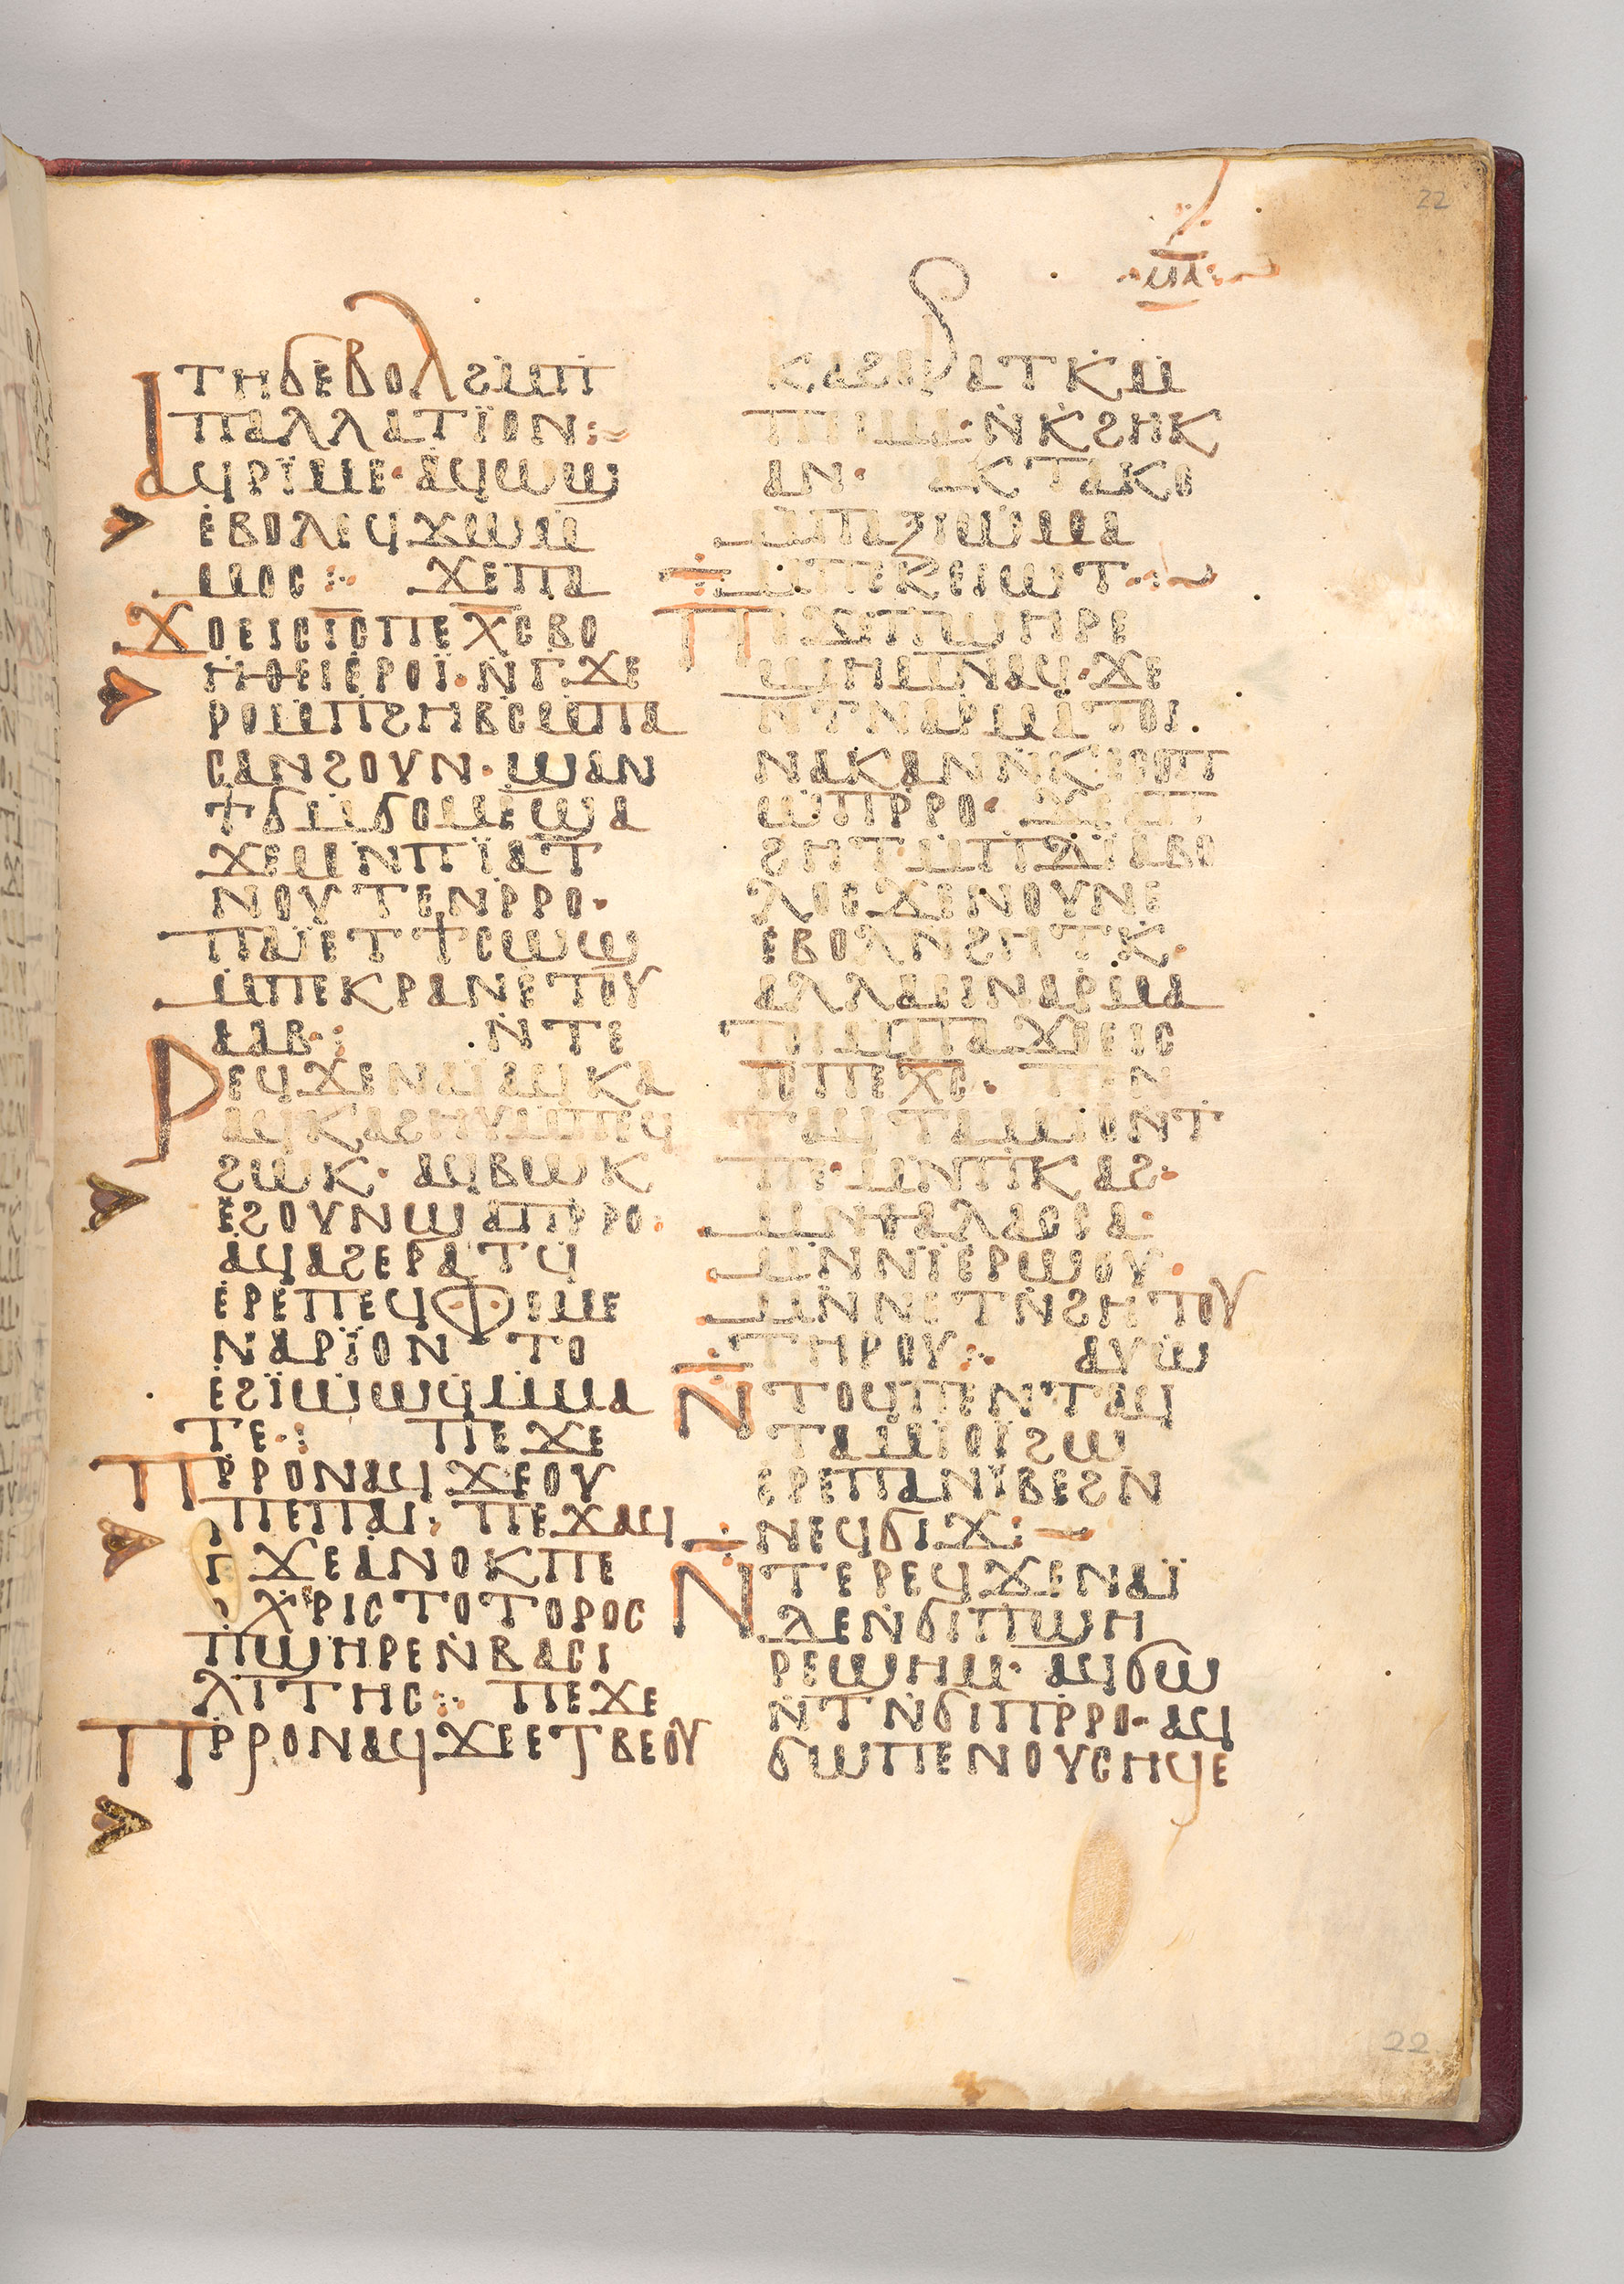 22
ⲙⲁ
ⲧⲏϭⲉⲃⲟⲗϩⲙⲡ
ⲡⲁⲗⲗⲁⲧⲓ̈ⲟⲛ:
ⲁϥⲣⲓ̈ⲙⲉ· ⲁϥⲱϣ
ⲉⲃⲟⲗⲉϥϫⲱⲙ̄
ⲙⲟⲥ: ϫⲉⲡⲁ
ϫⲟⲉⲓⲥⲓ̅ⲥ̅ⲡⲉⲭ̅ⲥ̅ⲃⲟ
ⲏⲑⲉⲓⲉⲣⲟⲓ̈·ⲛⲅϫⲉ
ⲣⲟⲙⲡϩⲏⲃⲥⲙⲡⲁ
ⲥⲁⲛϩⲟⲩⲛ·ϣⲁⲛ
ϯϭⲙϭⲟⲙⲉϣⲁ
ϫⲉⲙⲛⲡⲓ̈ⲁⲧ
ⲛⲟⲩⲧⲉⲛⲣⲣⲟ·
ⲡⲁⲓ̈ⲉⲧϯⲥⲱϣ
ⲙⲡⲉⲕⲣⲁⲛⲉⲧⲟⲩ
ⲁⲁⲃ: ⲛⲧⲉ
ⲣⲉϥϫⲉⲛⲁⲓ̈ⲁϥⲕⲁ
ⲁϥⲕⲁϩⲏⲩⲙⲡⲉϥ
ϩⲱⲕ· ⲁϥⲃⲱⲕ
ⲉϩⲟⲩⲛϣⲁⲡⲣⲣⲟ:
ⲁϥⲁϩⲉⲣⲁⲧϥ
ⲉⲣⲉⲡⲉϥⲫⲉⲙⲉ
ⲛⲁⲣⲓ̈ⲟⲛ ⲧⲟ
ⲉϩⲓ̈ⲱⲱϥⲙⲙⲁ
ⲧⲉ: ⲡⲉϫⲉ
ⲡⲣⲣⲟⲛⲁϥϫⲉⲟⲩ
ⲡⲉⲡⲁⲓ· ⲡⲉϫⲁϥ
ϫⲉⲁⲛⲟⲕⲡⲉ
ⲭⲣⲓⲥⲧⲟⲧⲟⲣⲟⲥ
ⲡϣⲏⲣⲉⲛⲃⲁⲥⲓ
ⲗⲓⲧⲏⲥ: ⲡⲉϫⲉ
ⲡⲣⲣⲟⲛⲁϥϫⲉⲉⲧⲃⲉⲟⲩ
ⲕⲁϩⲉⲣⲁⲧⲕⲙ̄
ⲡⲓⲙⲁ·ⲛⲕϩⲏⲕ
ⲁⲛ· ⲁⲕⲧⲁⲕⲟ
ⲙⲡⲁⲝⲓⲱⲙⲁ
ⲙⲡⲉⲕⲉⲓⲱⲧ·:
ⲡⲉϫⲉⲡϣⲏⲣⲉ
ϣⲏⲙⲛⲁϥ·ϫⲉ
ⲛϯⲛⲁⲣⲙⲁⲧⲟⲓ
ⲛⲁⲕⲁⲛⲛⲕⲉⲥⲟⲡ
ⲱⲡⲣⲣⲟ· ϫⲉⲡ
ϩⲏⲧⲙⲡⲇⲓ̈ⲁⲃⲟ
ⲗⲟⲥϫⲉⲛⲟⲩⲛⲉ
ⲉⲃⲟⲗⲛϩⲏⲧⲕ·
ⲁⲗⲗⲁⲉⲓⲛⲁⲣⲙⲁ
ⲧⲟⲓⲙⲡⲁϫⲟⲉⲓⲥ
ⲓ̅ⲥ̅ⲡⲉⲭ̅ⲥ̅· ⲡⲉⲛ
ⲧⲁϥⲧⲁⲙⲓⲟⲛⲧ
ⲡⲉ·ⲙⲛⲡⲕⲁϩ·
ⲙⲛⲑⲁⲗⲁⲥⲥⲁ·
ⲙⲛⲛⲓ̈ⲉⲣⲱⲟⲩ·
ⲙⲛⲛⲉⲧⲛϩⲏⲧⲟⲩ
ⲧⲏⲣⲟⲩ: ⲁⲩⲱ
ⲛⲧⲟϥⲡⲉⲛⲧⲁϥ
ⲧⲁⲙⲓ̈ⲟⲓ̈ϩⲱ
ⲉⲣⲉⲡⲁⲛⲓ̈ⲃⲉϩⲛ
ⲛⲉϥϭⲓϫ:
ⲛⲧⲉⲣⲉϥϫⲉⲛⲁⲓ̈
ⲇⲉⲛϭⲓⲡϣⲏ
ⲣⲉϣⲏⲙ· ⲁϥϭⲱ
ⲛⲧⲛϭⲓⲡⲣⲣⲟ·ⲁϥ
ϭⲱⲡⲉⲛⲟⲩⲥⲏϥⲉ
22